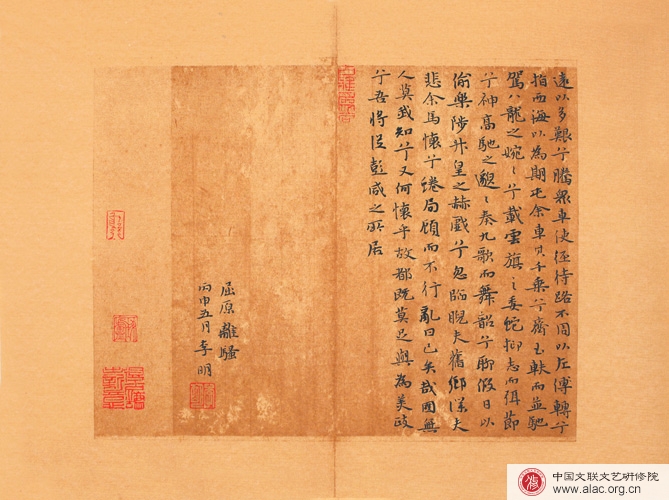 遠以多艱兮騰眾車使徑待路不周以左傳轉兮
指西海以為期屯余車其千乘兮齊玉軑而並馳
駕八龍之婉〻兮載雲旗之委蛇抑志而弭節
兮神高馳之邈〻奏九歌而舞韶兮聊假日以
偷樂陟升皇之赫戲兮忽臨睨夫舊鄉僕夫
悲余馬懷兮蜷局顧而不行亂曰已矣哉國無
人莫我知兮又何懷乎故都既莫足與為美政
兮吾將從彭咸之所居
屈原離騷
丙申五月李明
中国文联文艺研修院
www.alac.org.cn